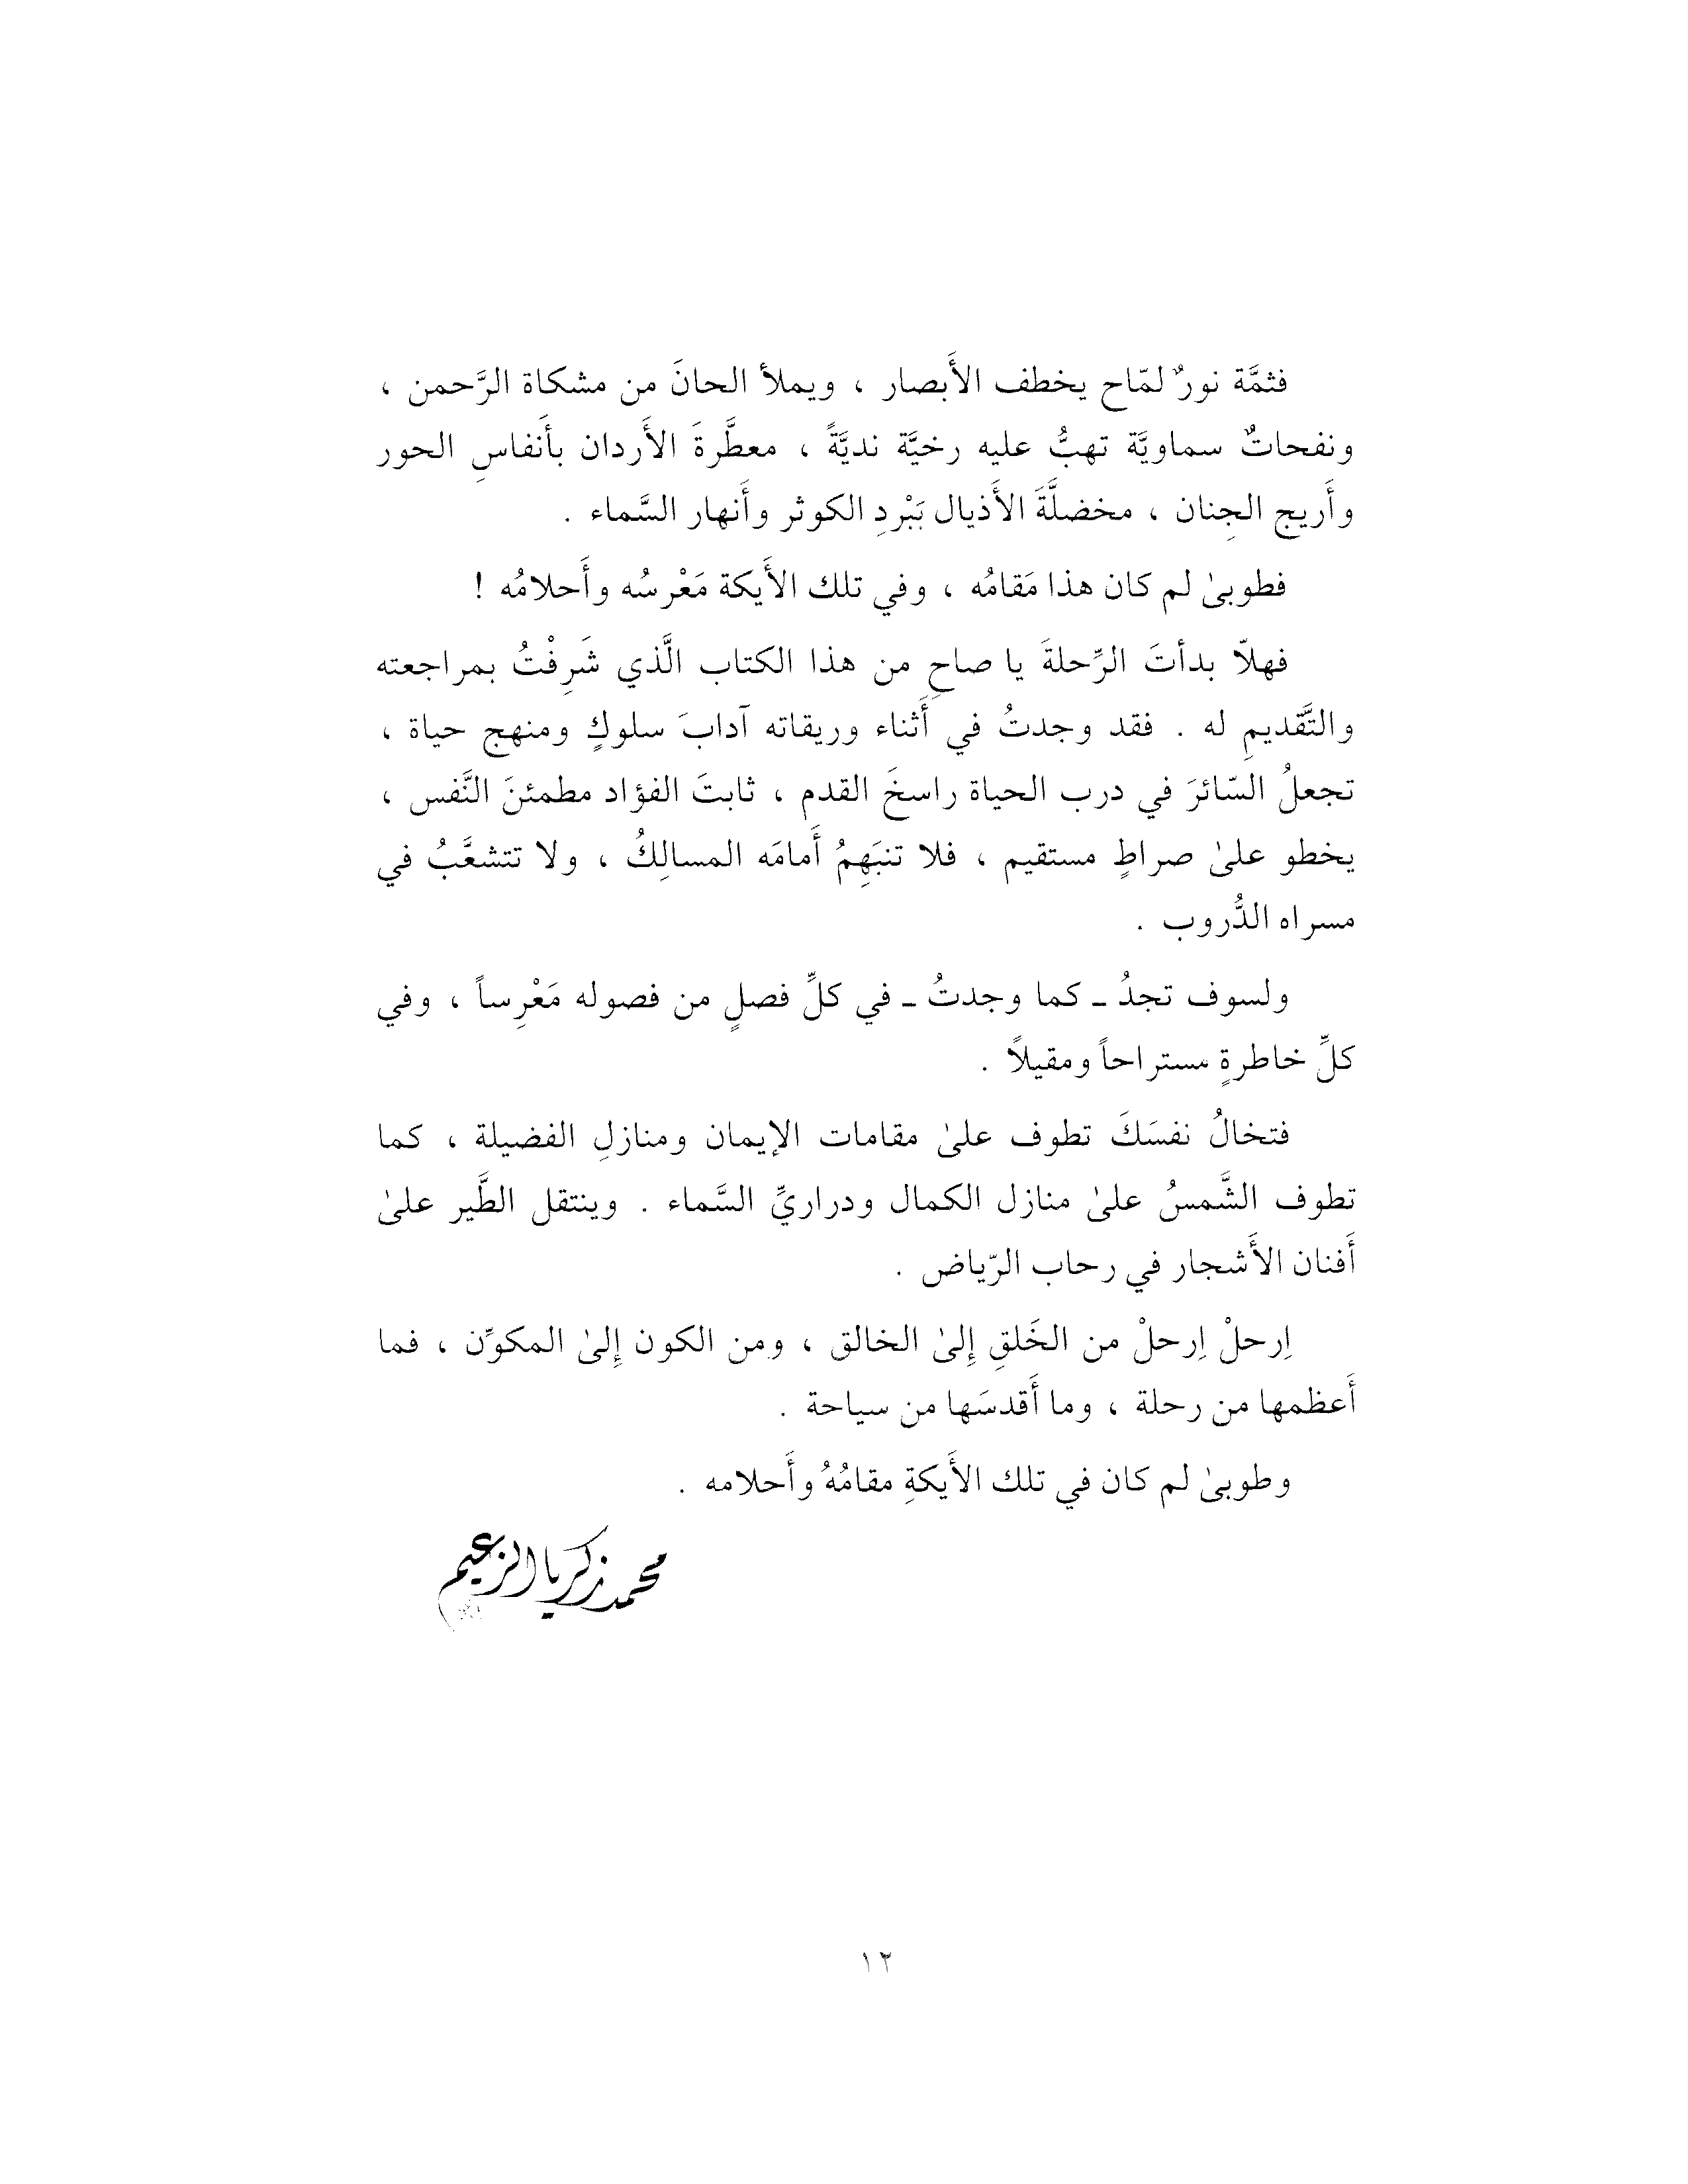 فثمَّة نورٌ لمّاح يخطف الأَبصار ، ويملأ الحانَ من مشكاة الرَّحمن ،
ونفحاتٌ سماويَّة تهبُّ عليه رخيَّة نديَّةً ، معطَّرةَ الأَردان بأَنفاسِ الحور
وأَريج الجِنان ، مخضلَّةَ الأَذيال بَبْردِ الكوثر وأَنهار السَّماء .
فطوبىٰ لم كان هذا مَقامُه ، وفي تلك الأَيكة مَعْرسُه وأَحلامُه !
فهلاّ بدأتَ الرِّحلةَ يا صاحِ من هذا الكتاب الَّذي شَرِفْتُ بمراجعته
والتَّقديمِ له . فقد وجدتُ في أَثناء وريقاته آدابَ سلوكٍ ومنهج حياة ،
تجعلُ السّائرَ في درب الحياة راسخَ القدم ، ثابتَ الفؤاد مطمئنَ النَّفس ،
يخطو علىٰ صراطٍ مستقيم ، فلا تنبَهِمُ أَمامَه المسالِكُ ، ولا تتشعَّبُ في
مسراه الدُّروب .
ولسوف تجدُ ـ كما وجدتُ ـ في كلِّ فصلٍ من فصوله مَعْرِساً ، وفي
كلِّ خاطرةٍ مستراحاً ومقيلاً .
فتخالُ نفسَكَ تطوف علىٰ مقامات الإيمان ومنازلِ الفضيلة ، كما
تطوف الشَّمسُ علىٰ منازل الكمال ودراريِّ السَّماء . وينتقل الطَّير علىٰ
أَفنان الأَشجار في رحاب الرّياض .
اِرحلْ اِرحلْ من الخَلقِ إِلىٰ الخالق ، ومن الكون إِلىٰ المكوِّن ، فما
أَعظمها من رحلة ، وما أَقدسَها من سياحة .
وطوبىٰ لم كان في تلك الأَيكةِ مقامُهُ وأَحلامه .
محمد زكريا الزعيم
١٢